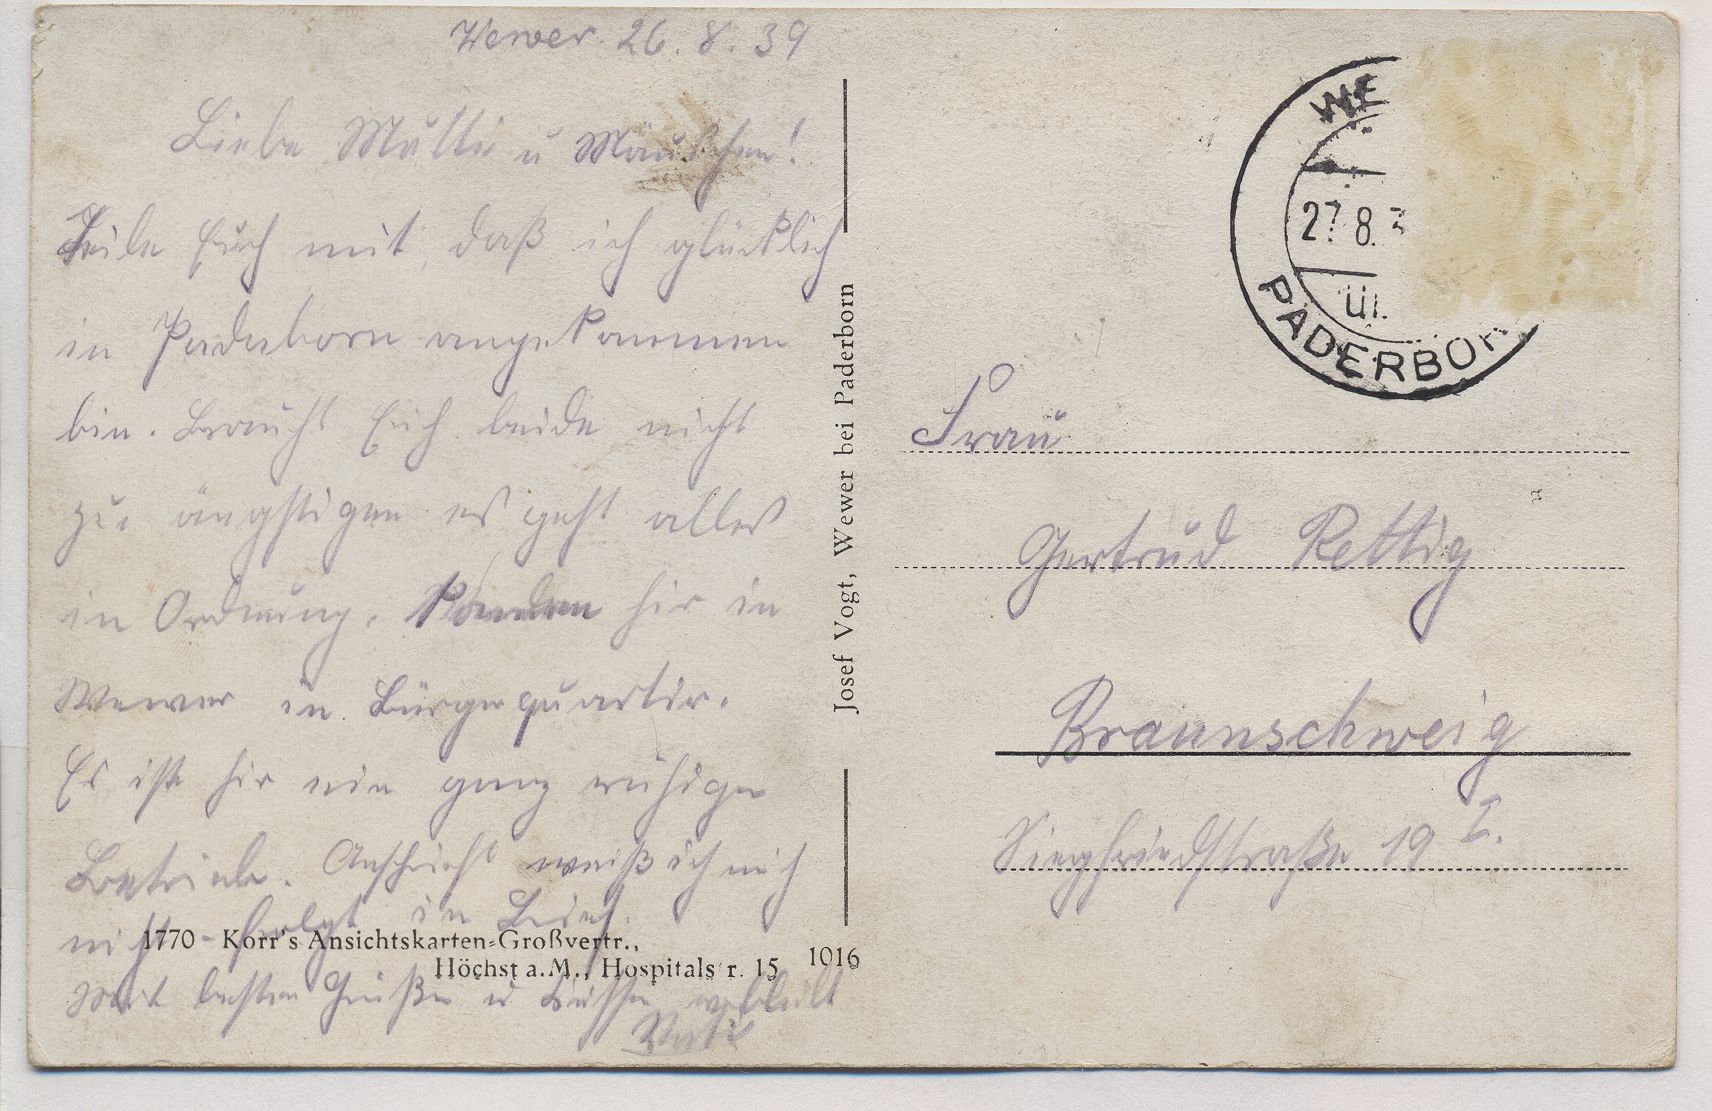 Wewer 26. 8. 39
Liebe Mutti u Mäuschen!
Teile Euch mit, daß ich glücklich
in Paderborn angekommen
bin. Braucht Euch beide nicht
zu ängstigen es geht alles
in Ordnung. hir in
Wewer in Bürgerquartir.
Es ist hir ein ganz ruhiger
Betrieb. Anschrift weiß ich noch
nicht folgt in Brief.
Mit besten Grüßen u Küssen verbleibt
Vati
1770 - Korr's Ansichtskarten-Großvertr.,
Höchst a.M., Hospitalstr. 15
1016
Josef Vogt, Wewer bei Paderborn
WE
27.8.3
ü.
PADERBORN
Frau
Gertrud Rettig
Braunschweig
Siegfriedstraße 19 I.